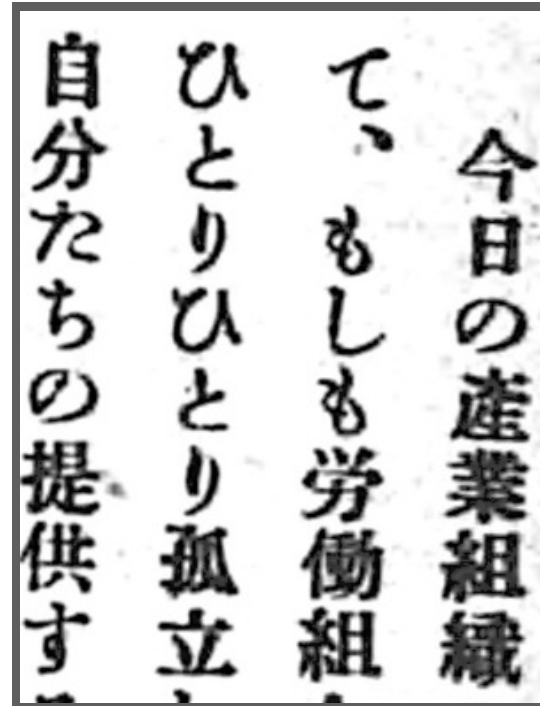 今日の産業組織
て、もしも労働組
ひとりひとり孤立
自分たちの提供す